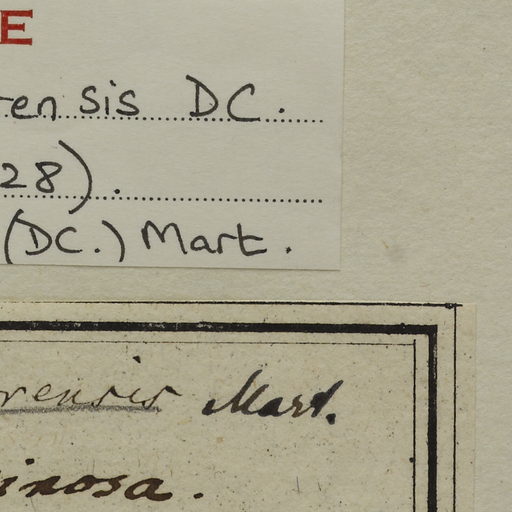 E
rensis DC.
28).
(DC.) Mart.
rensis Mart.
inosa.